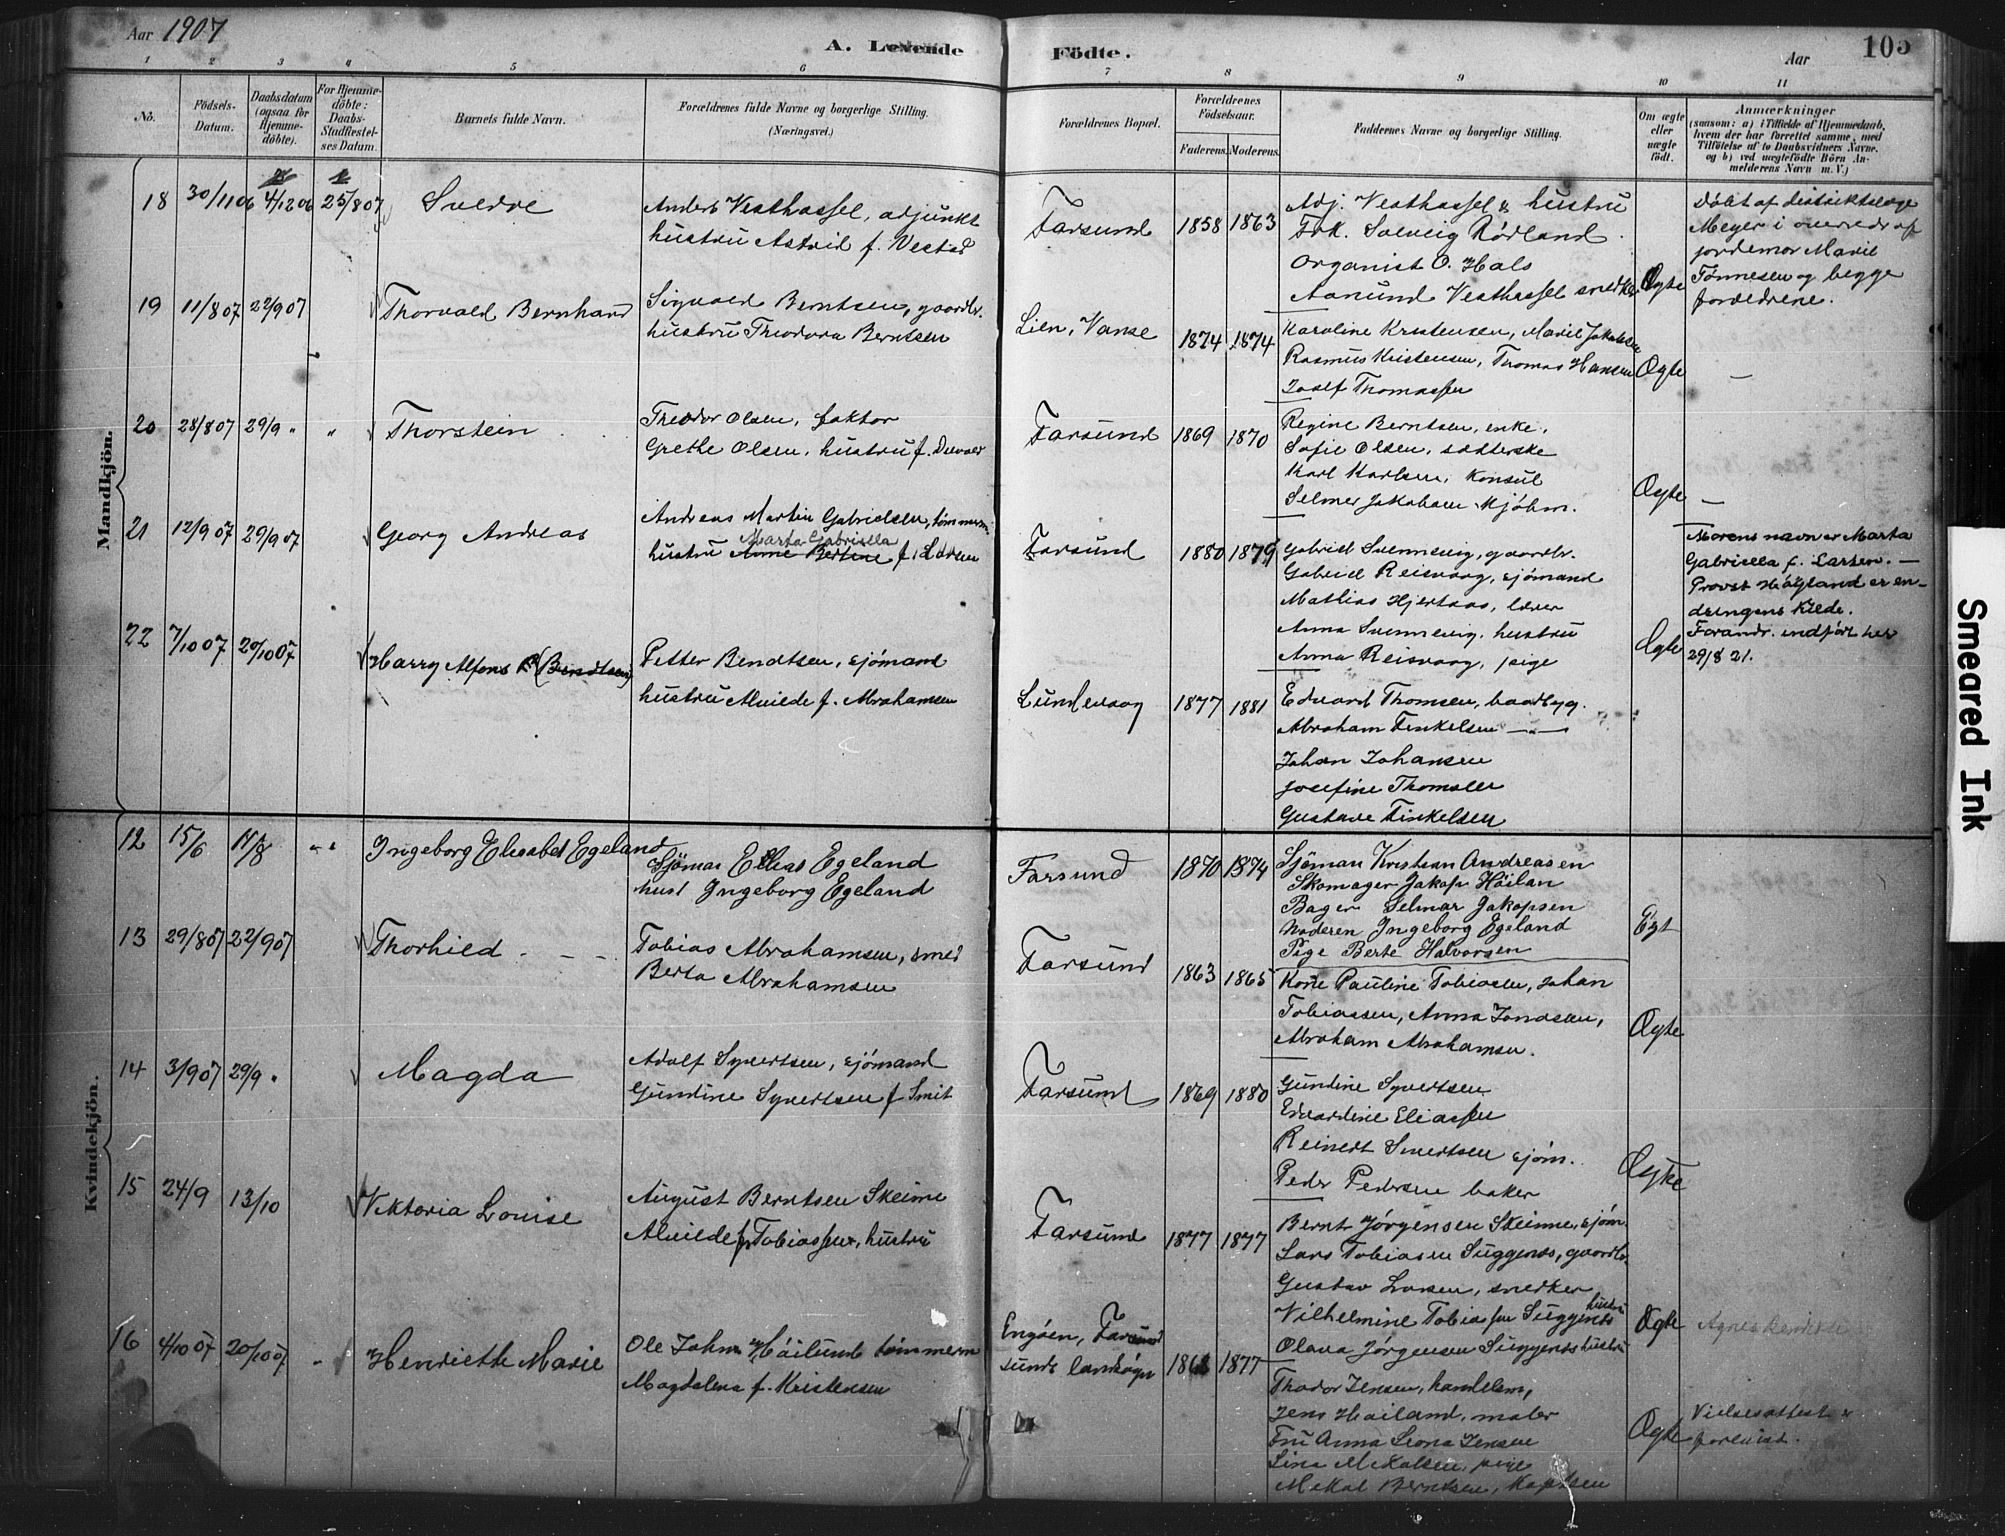 Aar 1907
A. Levende Födte.
Aar
105
1 2 3 4 5 6 7 8 9 10 11
No.
Födsels-Datum.
Daabsdatum (ogsaa for Hjemmedöbte).
For Hjemmedöbte: Daabs-Stadfæstelses Datum.
Barnets fulde Navn.
Forældrenes fulde Navne og borgerlige Stilling.
(Næringsvei.)
Forældrenes Bopæl.
Forældrenes Födselsaar.
Faderens. Moderens.
Faddernes Navne og borgerlige Stilling.
Om ægte eller uægte födt.
Anmærkninger
(saasom: a) i Tilfælde af Hjemmedaab,
hvem der har forrettet samme, med
Tilföielse af to Daabsvidners Navne,
og b) ved uægtefödte Börn An-
melderens Navn m. V.)
Mandkjön.
18 30/11 06 4/12 06 25/8 07 Sverre
Anders Vesthassel, adjunkt
hustru Astrid f. Vestad
Farsund 1858 1863
Adj. Vesthassel & hustru
Frk. Solveig Rødland
Organist O. Hals
Aanund Vesthassel snedker
Ægte
Døbt af distriktslæge
Meyer i overvær af
jordemor Marie
Tønnesen og begge
forældrene.
19 11/8 07 22/9 07 Thorvald Bernhard
Sigvald Berntsen, gaardbr.
hustru Theodora Berntsen
Lien, Vanse 1874 1874
Karoline Kristensen, Marie Jakobsen
Rasmus Kristensen, Thomas Hansen
Isalf Thomassen
Ægte —
20 28/8 07 29/9 „ „ Thorstein
Theodor Olsen, faktor
Grethe Olsen, hustru f. Duvald
Farsund 1869 1870
Regine Berntsen, enke,
Sofie Olsen, sætterske
Karl Karlsen, Konsul
Selmer Jakobsen kjøbm.
Ægte —
21 12/9 07 29/9 07 Georg Andreas
Andreas Martin Gabrielsen, tømmerm.
Marta Gabriella
hustru Anne Bertine f. Larsen
Farsund 1880 1879
Gabriel Svennevig, gaardbr.
Gabriel Reisvaag, sjømand
Mathias Hjertaas, lærer
Anna Svennevig, hustru
Anna Reisvaag, pige
Ægte
Morens navn er Marta
Gabriella f. Larsen. —
Provst Høyland er en-
dringens kilde.
Forandr. indført her
29/8 21.
22 7/10 07 20/10 07 Harry Alfons (Bendtsen)
Petter Bendtsen, sjømand
hustru Alvilde f. Abrahamsen
Lundevaag 1877 1881
Edvard Thomsen, baadbyg.
Abraham Finkelsen —„—
Johan Johansen
Josefine Thomsen
Gustave Finkelsen
Kvindekjön.
12 15/6 11/8 „ „ Ingeborg Elisabet Egeland
Sjöman Elias Egeland
hust Ingeborg Egeland
Farsund 1870 1874
Sjöman Kristian Andreasen
Skomager Jakop Höilan
Bager Selmar Jakopsen
Moderen Ingeborg Egeland
Pige Berte Halvorsen
Egt
13 29/8 07 22/9 07 Thorhild
Tobias Abrahamsen, smed
Berta Abrahamsen
Farsund 1863 1865
Kone Pauline Tobiassen, Johan
Tobiassen, Anna Jonassen,
Abraham Abrahamsen.
Ægte
14 3/9 07 29/9 „ Magda
Adolf Syvertsen, sjømand
Gundine Syvertsen f Smit
Farsund 1869 1880
Gundine Syvertsen
Edvardine Eliassen
Reinert Sivertsen sjøm.
Peder Pedersen baker
Ægte
15 24/9 13/10 Viktoria Louise
August Berntsen Skeime
Alvilde f. Tobiassen, hustru
Farsund 1877 1877
Bernt Jørgensen Skeime, sjøm.
Lars Tobiasen Suggenes, gaardbr.
Gustav Larsen, snedker
Vilhelmine Tobiassen Suggenes hustru
Olava Jørgensen Suggenes hustru
Ægte
16 4/10 07 20/10 07 „ Henriette Marie
Ole Johan Höilund tømmerm
Magdalena f. Kristensen
Engøen, Farsund
sunds landsogn 1877
Thodor Jensen, handelsm,
Jens Høiland, maler
Fru Anna Leona Jensen
Lina Mekalsen, pige
Mekal Berntsen, Kaptein
Ægte
Vielsesattest
forevist.
Smeared Ink